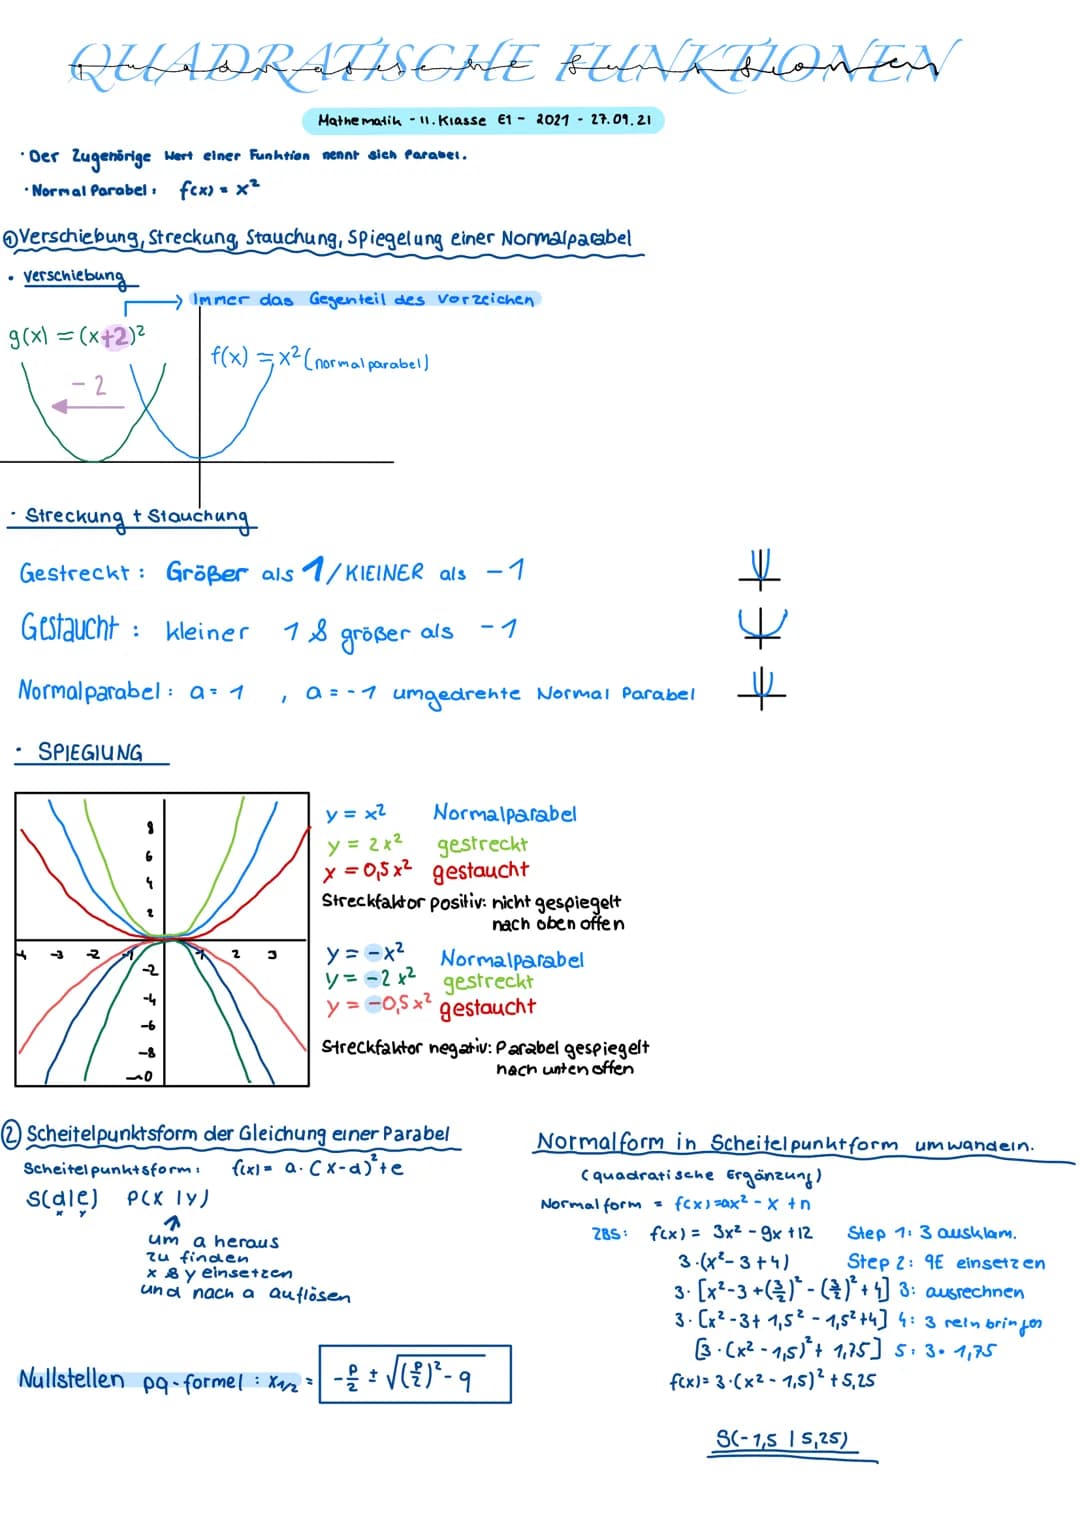 QUADRATISCHE FUNKTIONEN
quadratische funktionen
Mathematik - 11. Klasse E1 - 2021 - 27.09.21
· Der Zugehörige Wert einer Funktion nennt sich Parabel.
· Normal Parabel: f(x) = x²
① Verschiebung, Streckung, Stauchung, Spiegelung einer Normalparabel
· Verschiebung
Immer das Gegenteil des Vorzeichen
g(x) = (x+2)²
f(x) = x² (normalparabel)
- 2
· Streckung + Stauchung
Gestreckt: Größer als 1/KlEINER als -1
Gestaucht: kleiner 1 & größer als -1
Normalparabel: a = 1 , a = -1 umgedrehte Normal Parabel
· SPIEGlUNG
8
6
4
2
-4 -3 -2 -1 1 2 3
-2
-4
-6
-8
-10
y = x² Normalparabel
y = 2x² gestreckt
x = 0,5x² gestaucht
Streckfaktor positiv: nicht gespiegelt
nach oben offen
y = -x² Normalparabel
y = -2x² gestreckt
y = -0,5x² gestaucht
Streckfaktor negativ: Parabel gespiegelt
nach unten offen
② Scheitelpunktsform der Gleichung einer Parabel
Scheitelpunktsform: f(x) = a · (x-d)² + e
S(d|e) P(x|y)
x y
um a heraus
zu finden
x & y einsetzen
und nach a auflösen
Nullstellen pq-formel: x1/2 = -p/2 ± √((p/2)² - q
Normalform in Scheitelpunktform umwandeln.
(quadratische Ergänzung)
Normalform = f(x) = ax² - x + n
ZBS: f(x) = 3x² - 9x + 12 Step 1: 3 ausklam.
3·(x² - 3 + 4) Step 2: QE einsetzen
3·[x² - 3 + (3/2)² - (3/2)² + 4] 3: ausrechnen
3·[x² - 3 + 1,5² - 1,5² + 4] 4: 3 rein bringen
[3·(x² - 1,5)² + 1,75] 5: 3 · 1,75
f(x) = 3·(x² - 1,5)² + 5,25
S(-1,5 | 5,25)